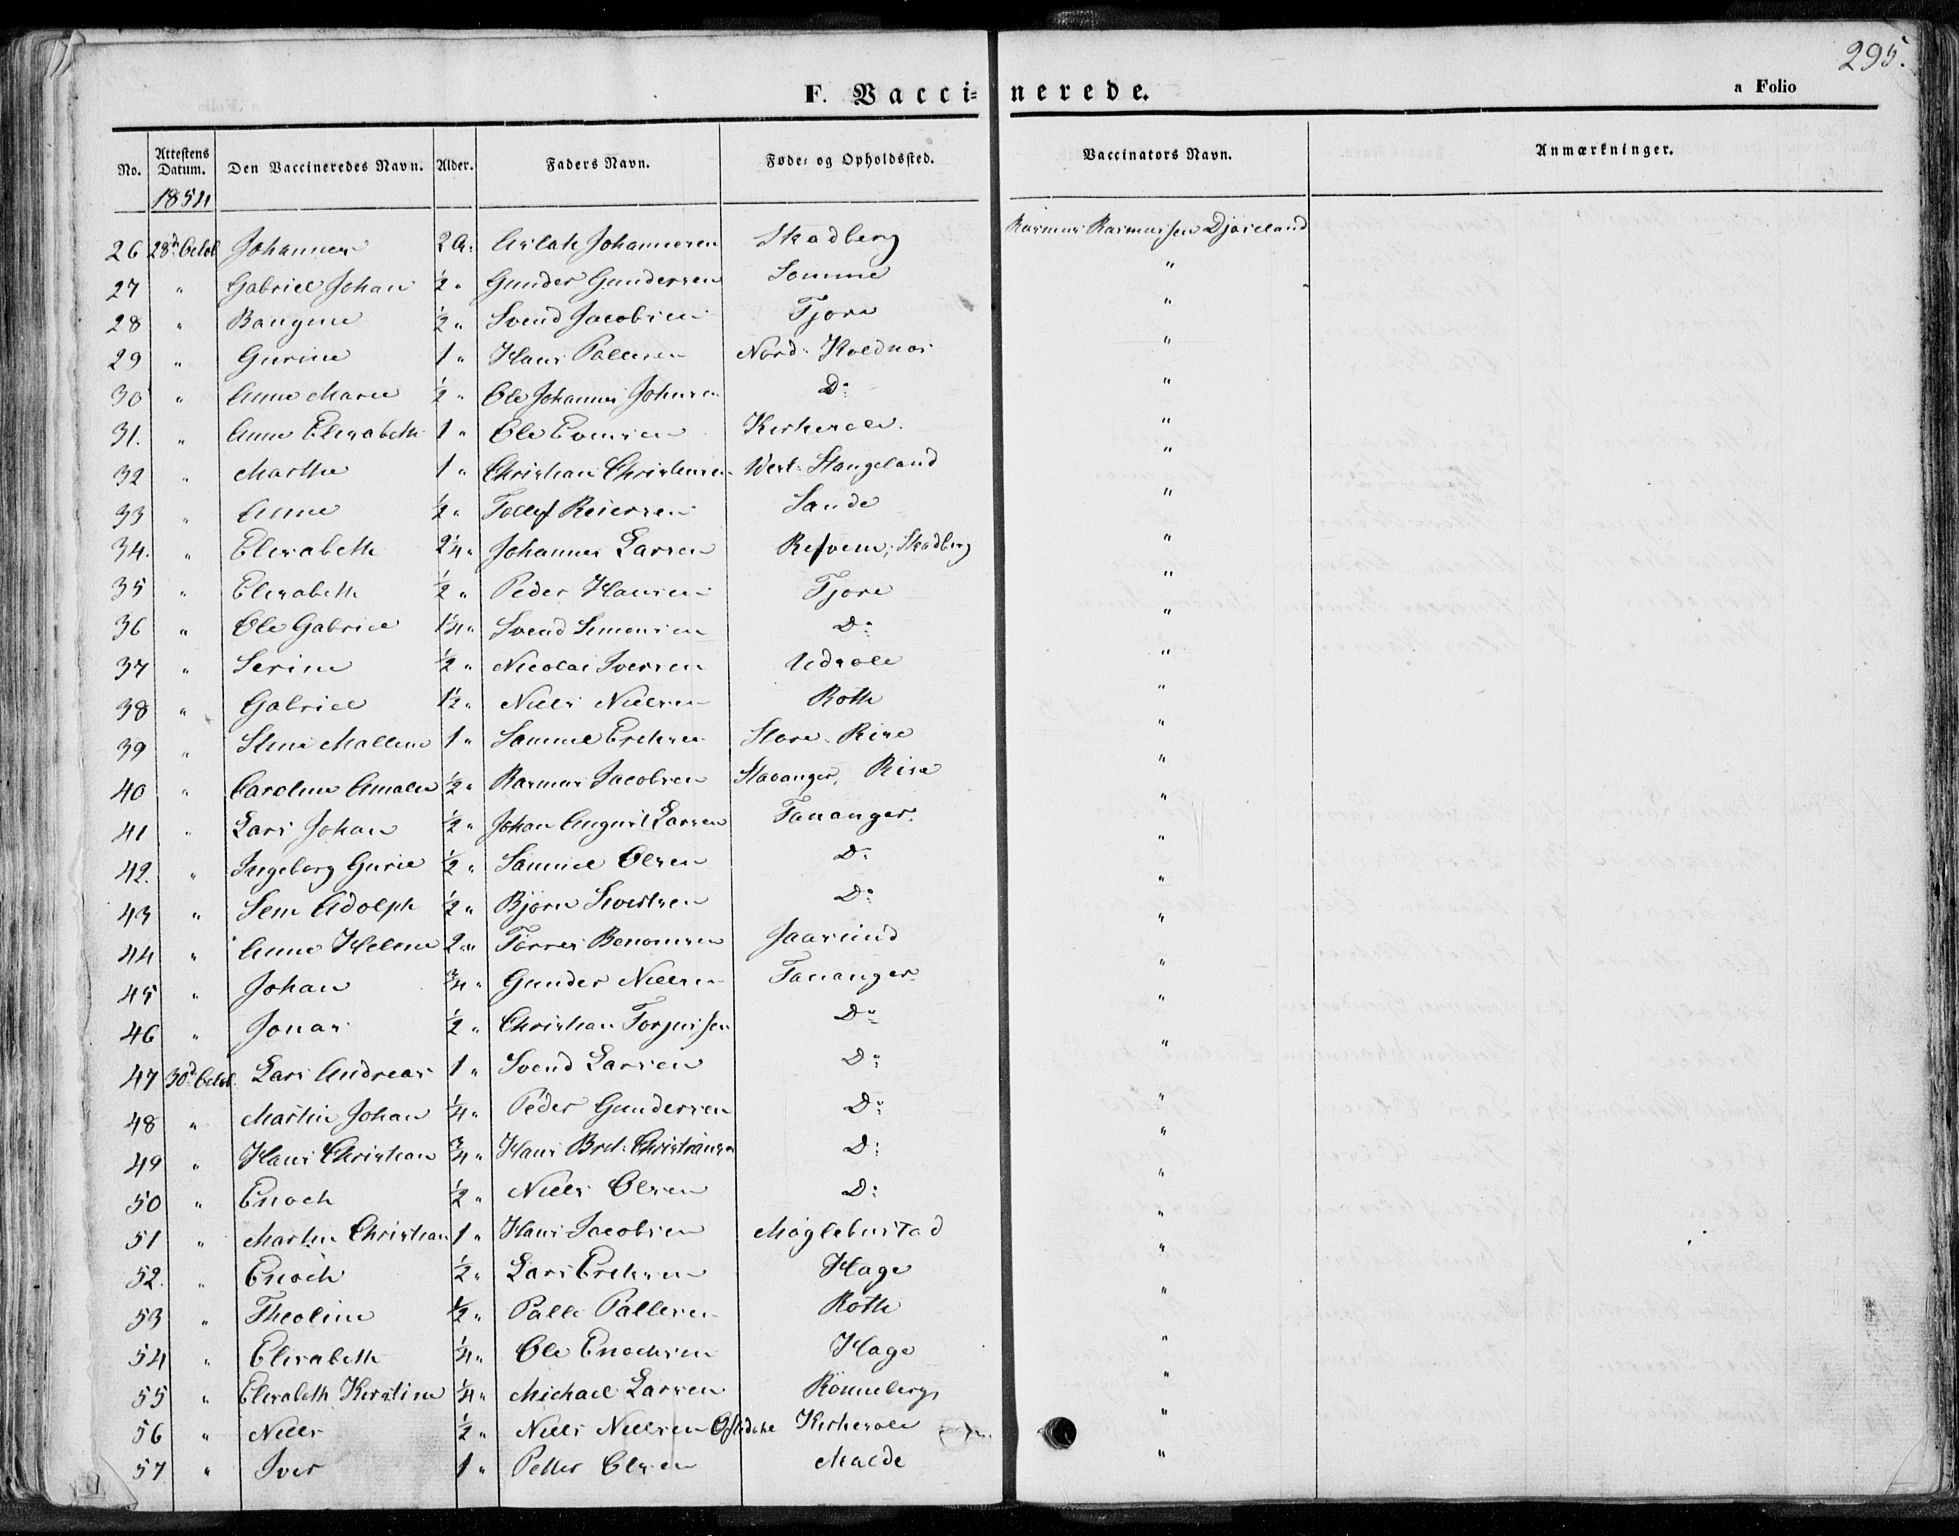 295.
F. Vaccinerede.
a Folio
No. Attestens Datum. Den Vaccineredes Navn. Alder. Faders Navn. Føde= og Opholdssted. Vaccinators Navn. Anmærkninger.
1854
26 28d Octob Johannes 2 a: Aslak Johannesen Skadberg Rasmus Rasmussen
27 " Gabriel Johan ½ " Gunder Gundersen Somme "
28 " ½ " Svend Jacobsen Tjore "
29 " Gurine 1 " Hans Pallesen Nord: "
30 " Anne Marie ½ " Ole Johannes Johnsen D: "
31. " Anne Elisabeth 1 " Ole Evensen Kirkesole. "
32 " Marthe 1 " Christian Christensen Vest: Stangeland "
33 " Anne ½ " Tollef Reiersen Sande "
34. " Elisabeth 2¼ " Johannes Larsen Refvem, Skadberg "
35 " Elisabeth ½ " Peder Hansen Tjore "
36 " Ole Gabriel 1¼ " Svend Simonsen D: "
37 " Serine ½ " Nicolai Iversen Udsole "
38 " Gabriel 1½ " Niels Nielsen Roth "
39 " Stine Malline 1 " Samuel Ericksen Store Rise "
40 " Caroline Amalie ½ " Rasmus Jacobsen Stavanger, Risa "
41 " Lars Johan ½ " Johan August Larsen Tananger. "
42. " Ingeborg Gurie ½ " Samuel Olsen D: "
43 " Sem Adolph ½ " Bjørn Sivertsen D: "
44 " Anne Helene 2 " Tørres Benomsen Jaasund "
45 " Johan ¾ " Gunder Nielsen Tananger. "
46 " Jonas ½ " Christian Torjussen D: "
47 30d Octob. Lars Andreas 1 " Svend Larsen D: "
48 " Martin Johan ¼ " Peder Gundersen D: "
49 " Hans Christian ¾ " Hans Bret: Christiansen D: "
50 " Enoch ½ " Niels Olsen D: "
51 " Martin Christian 1 " Hans Jacobsen Møglebustad "
52. " Enoch ½ " Lars Ericksen Hage "
53 " Theoline ½ " Palle Pallesen Roth "
54 " Elisabeth ¼ " Ole Enochsen Hage "
55 " Elisabeth Kirstine ¼ " Michael Larsen Rønneberg "
56 " Niels ½ " Niels Nielsen Kirkesole "
57 " Iver 1 " Petter Olsen Malde "